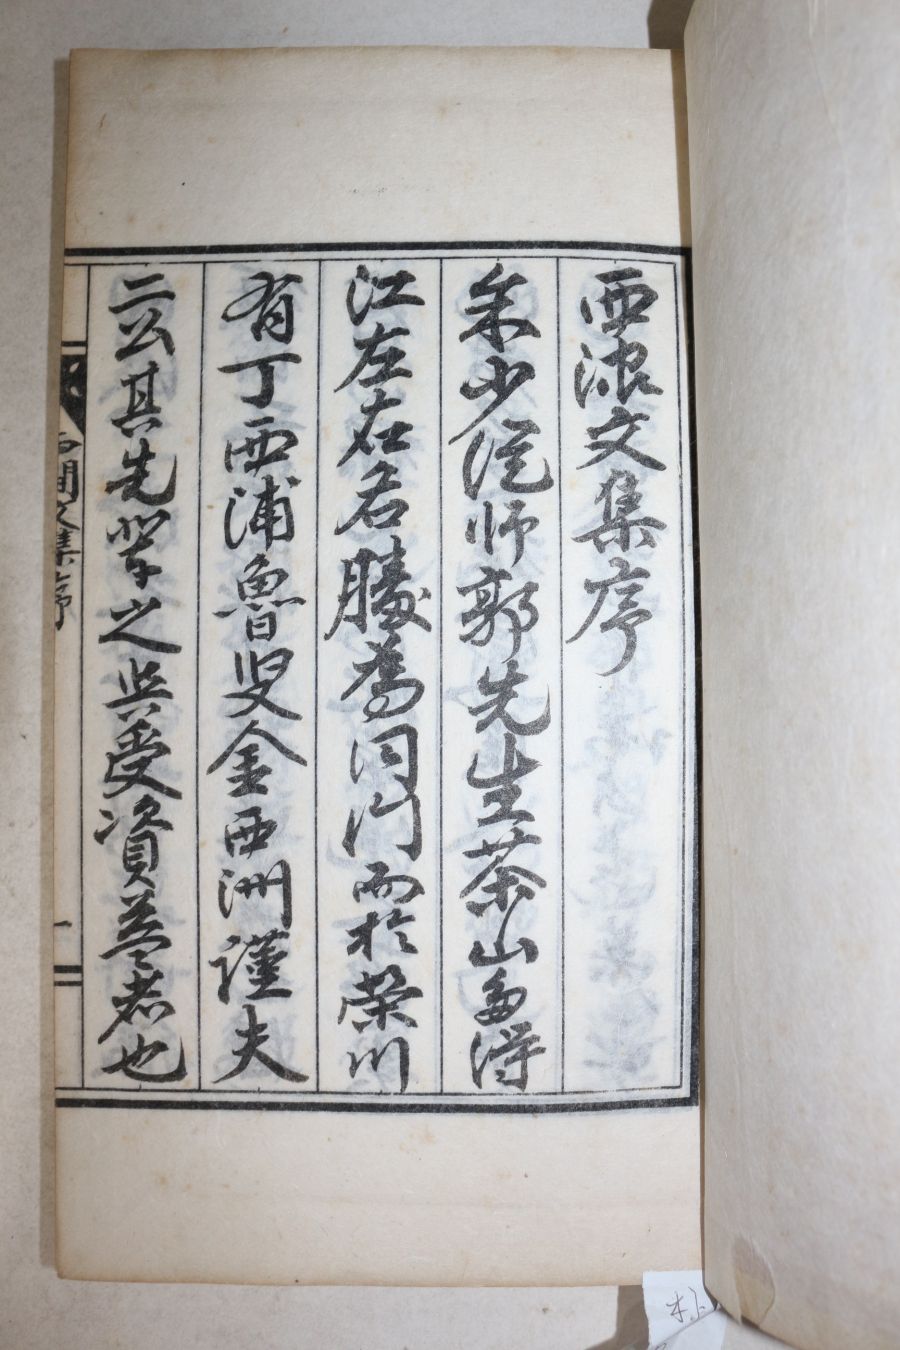 西澗文集序
余少從師郭先生茶山多得
江左右名勝爲同門而於榮川
有丁西浦魯叟金西洲謹夫
二公其先輩之與受資益者也
西澗文集序
一